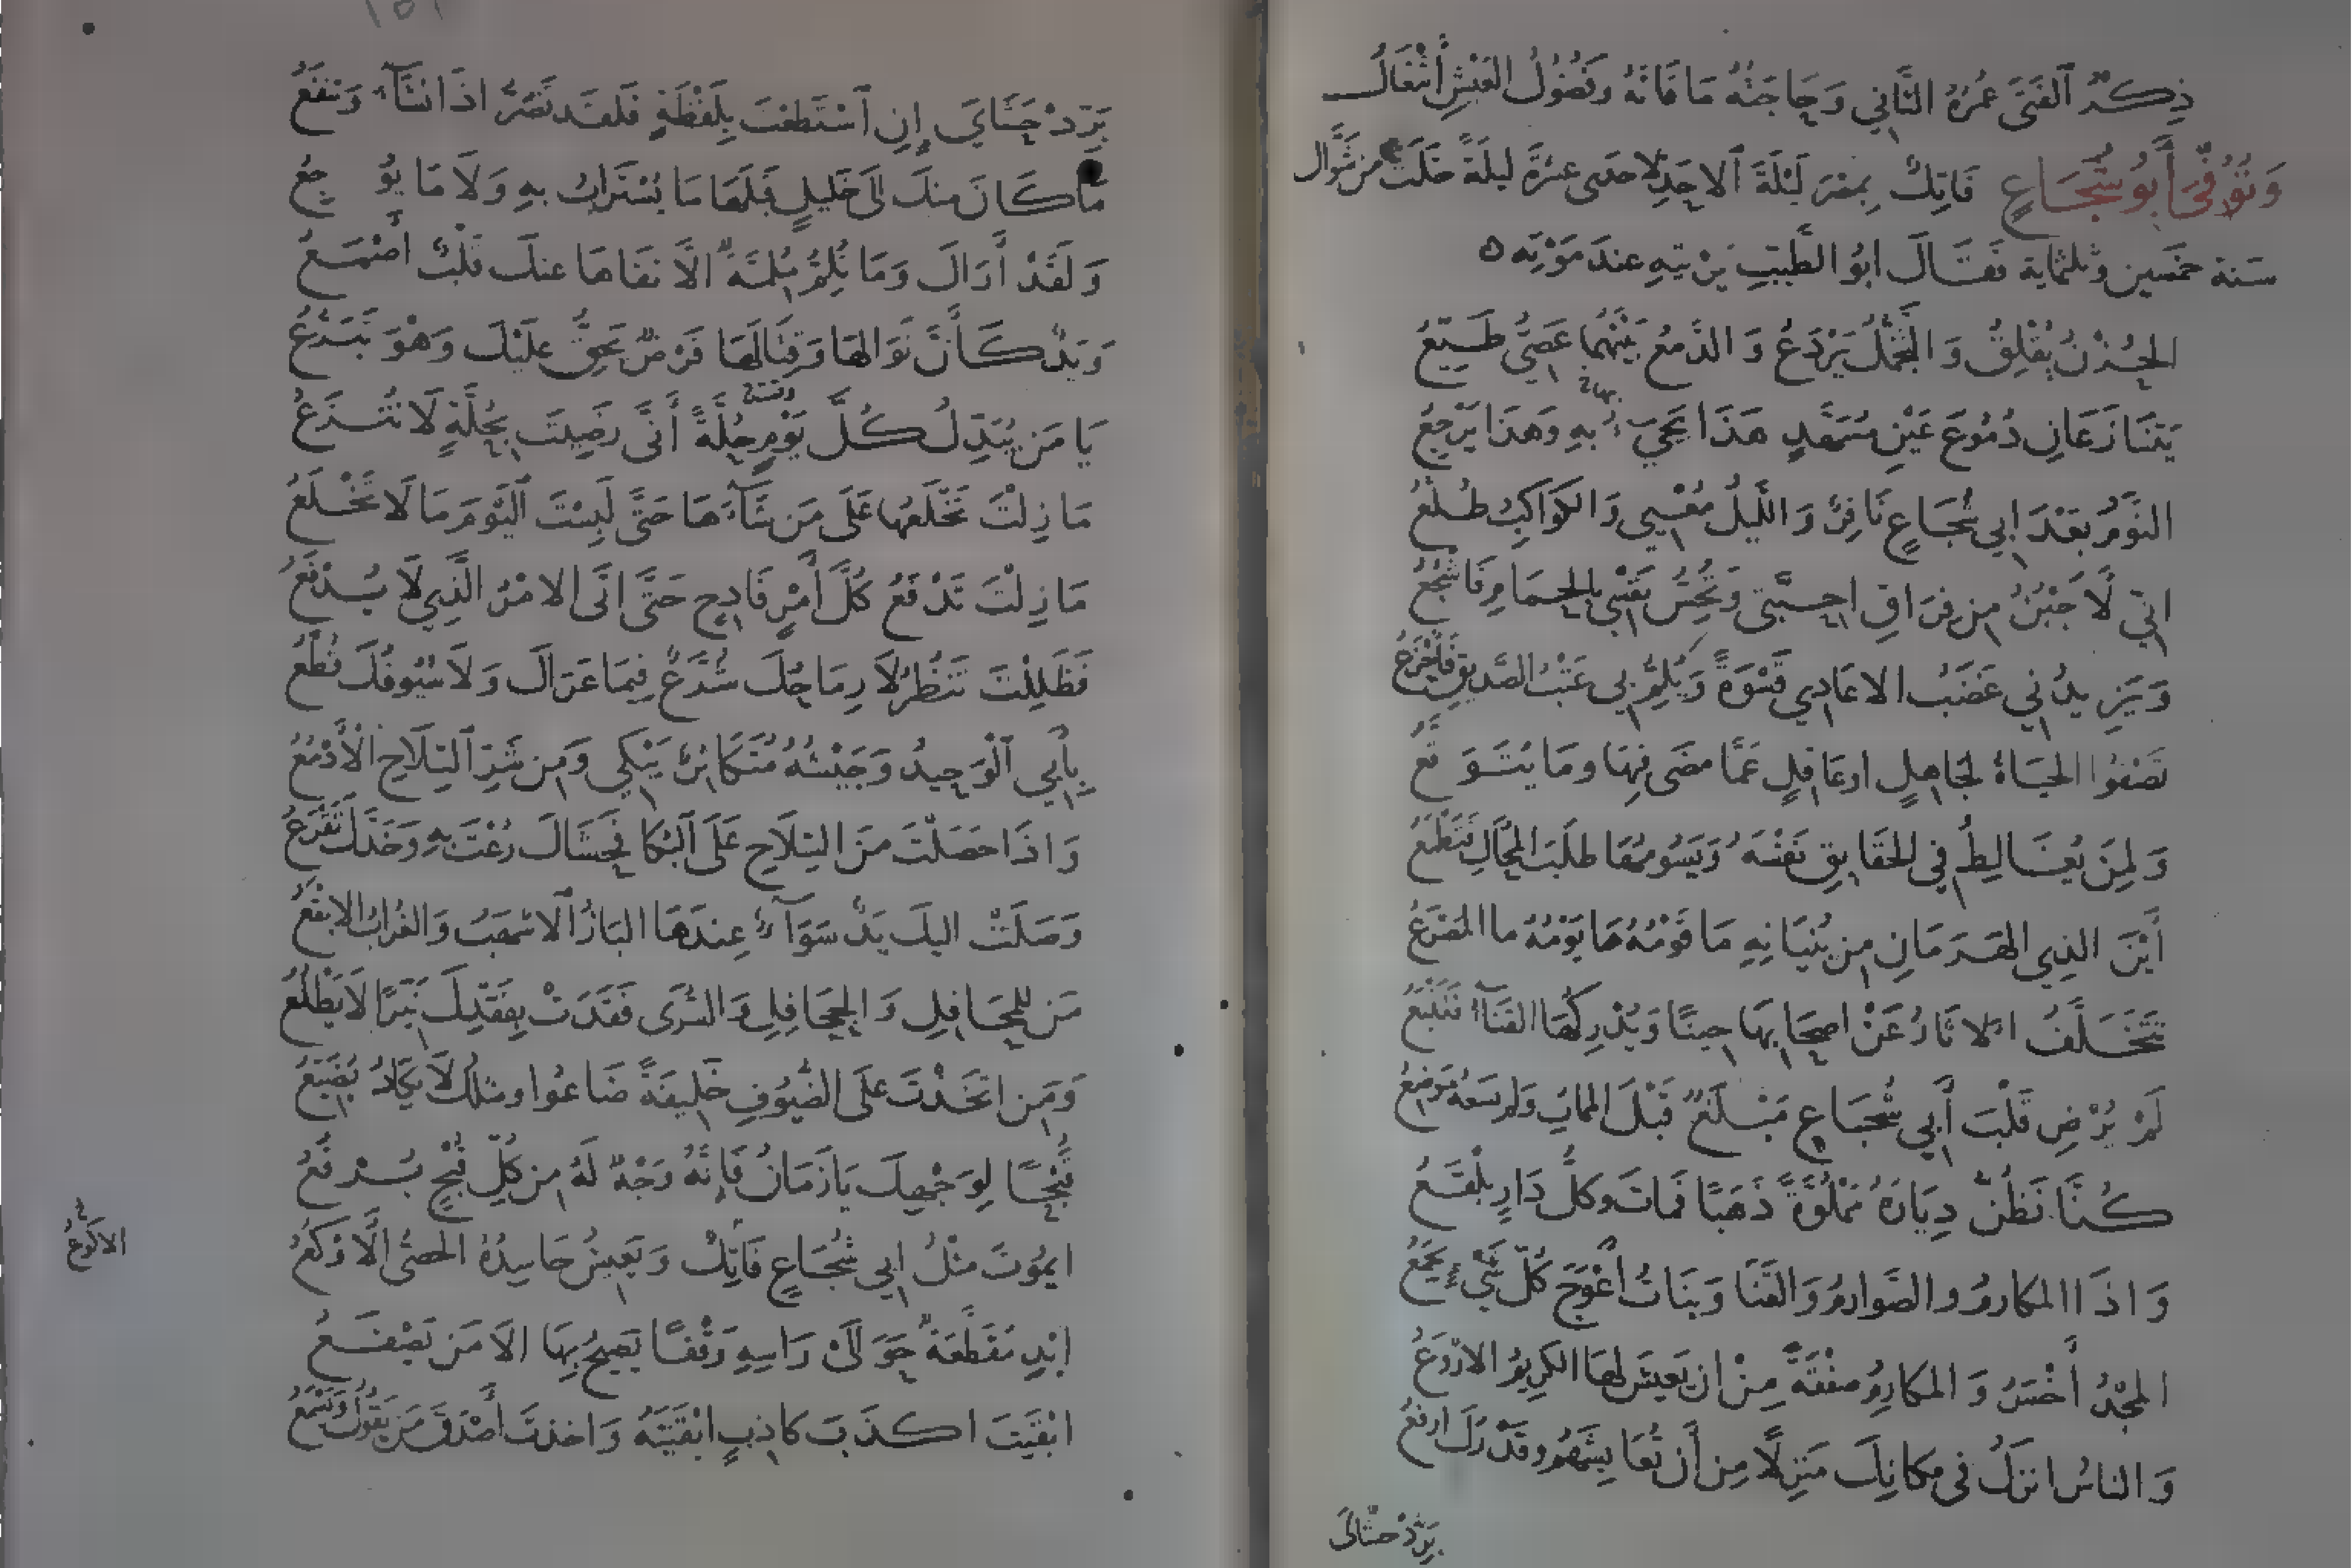 ذِكْرُ الفَتَى عُمْرُهُ الثَّانِي وَحَاجَتُهُ مَا فَاتَهُ وَفُضُولُ العَيْشِ أَشْغَالُ
وَتُوُفِّيَ أَبُو شُجَاعٍ فَاتِكٌ بِمِصْرَ لَيْلَةَ الاحَدِ لاحدى عشرَةَ ليلَةً خَلَتْ من شَوَّال
سَنة خمسين وثلثماية فَقَالَ ابُو الطَّيِّبِ يَرْثيهِ عِندَ مَوْتِه ه
الحُزْنُ يُقْلِقُ وَالتَّجَمُّلُ يَرْدَعُ وَالدَّمْعُ بَيْنَهُمَا عَصِيٌّ طَيِّعُ
يَتَنَازَعَانِ دُمُوعَ عَيْنِ مُسَهَّدٍ هَذَا يَجِيءُ بِهِ وَهَذَا يَرْجِعُ
بها
النَّوْمُ بَعْدَ ابِي شُجَاعٍ نَافِرٌ وَاللَّيلُ مُعْيِي وَالكَوَاكِبُ طُلَّعُ
انِّي لَأَجْبُنُ مِن فِرَاقِ احِبَّتِي وَتُحِسُّ نَفْسِي بِالحِمَامِ فَأَشْجُعُ
وَيَزِيدُنِي غَضَبُ الاعَادِي قَسْوَةً وَيُلِمُّ بِي عَتْبُ الصَّدِيقِ فَأَجْزَعُ
تَصْفُوا الحَيَاةُ لجَاهِلٍ اوغَافِلٍ عَمَّا مَضَى فِيهَا ومَا يُتَوَقَّعُ
وَلِمَن يُغَالِطُ فِي الحَقَايِقِ نَفْسَهُ وَيَسُومُهَا طَلَبَ المُحَالِ فَتَطْمَعُ
أَيْنَ الذِي الهَرَمَانِ مِن بُنْيَانِهِ مَا قَوْمُهُ مَا يَوْمُهُ ما المَصْرَعُ
تَتَخَلَّفُ الاثَارُ عَنْ اصحَابِهَا حِينًا وَيُدْرِكُهَا الفَنَآءُ فَتَتْبَعُ
لَمْ يُرْضِ قَلْبَ أَبِي شُجَاعٍ مَبْلَغٌ قَبْلَ المَمَاتِ وَلم يَسَعْهُ مَوْضِعُ
كُنَّا نَظُنُّ دِيَارَهُ مَمْلُوَّةً ذَهَبًا فَمَاتَ وكلُّ دَارٍ بلْقَعُ
وَاذَا المكارمُ والصَّوارمُ وَالقَنَا وَبَنَاتُ أَعْوَجَ كُلُّ شَيْءٍ يَجْمَعُ
المَجْدُ أَخْسَرُ وَالمكارمُ صَفْقَةً مِنْ ان يَعِيشَ لهَا الكريمُ الارْوَعُ
وَالناسُ انزَلُ في مكانِكَ مَنزِلًا مِن أَن تُعَايِشَهُم وقَدْرُكَ ارفَعُ
بَرِّدْ حشَاىَ
بَرِّدْ حَشَايَ إِنِ اسْتَطعْتَ بِلَفْظَةٍ فَلَقَد تَضُرُّ اذَا تشَآءُ وَتنْفَعُ
مَا كَانَ مِنكَ الَى خَلِيلٍ قَبْلَهَا مَا يُسْتَرَابُ بِهِ وَلَا مَا يُوجِعُ
وَلَقَدْ أَرَاكَ وَمَا تُلِمُّ مُلِمَّةٌ الَّا نفَاهَا عنكَ قَلْبٌ أَصْمَعُ
وَيَدٌ كَأَنَّ نَوَالهَا وَقِتَالَهَا فَرْضٌ يَحِقُّ علَيْكَ وَهْوَ تَبَرُّعُ
يَا مَن يُبَدِّلُ كُلَّ يَوْمٍ حُلَّةً أَنَّى رَضِيتَ بِحُلَّةٍ لَا تُنْزَعُ
مَا زِلْتَ تَخْلَعُهَا عَلَى مَن شَآءَهَا حَتَّى لَبِسْتَ اليَوْمَ مَا لَا تَخْلَعُ
مَا زِلْتَ تَدْفَعُ كُلَّ أَمْرٍ فَادِحٍ حَتَّى اتَى الامْرُ الَّذِي لَا يُدْفَعُ
فَظَلِلْتَ تَنْظُرُ لَا رِمَاحُكَ شُرَّعٌ فِيمَا عَرَاكَ وَلَا سُيُوفُكَ قُطَّعُ
بِأَبِي الْوَحِيدُ وَجَيْشُهُ مُتَكَاثِرٌ يَبْكِي وَمِن شَرِّ السِّلَاحِ الْأَدْمُعُ
وَاذَا حَصَلْتَ مِنَ السِّلَاحِ عَلَى البُكَا فَحَشَاكَ رُعْتَ بِهِ وَخَدَّكَ تَقْرَعُ
وَصَلَتْ اليكَ يَدٌ سَوَآءٌ عِندَهَا البَازُ الاشهَبُ وَالغُرَابُ الابقَعُ
مَن لِلمَحَافِلِ وَالجَحَافِلِ وَالسُّرَى فَقَدَتْ بِفَقْدِكَ نَيِّرًا لَا يَطْلُعُ
وَمَنِ اتَّخَذْتَ عَلَى الضُّيُوفِ خَلِيفَةً ضَاعُوا ومثلك لَا يَكَادُ يُضَيِّعُ
قُبْحًا لِوَجْهِكَ يَا زَمَانُ فَإِنَّهُ وَجْهٌ لَهُ مِن كُلِّ قُبْحٍ بُرْقُعُ
ايمُوتُ مثْلُ ابِي شُجَاعٍ فَاتِكٌ وَيَعِيشُ حَاسِدُهُ الخصىُّ الَاوْكَعُ
الاكوعُ
ايْدٍ مُقَطَّعَةٌ حَوَالَىْ رَاسِهِ وَقَفًا يَصِيحُ بِهَا الَا مَن يَصْفَعُ
ابْقَيْتَ اكذَبَ كَاذِبٍ ابْقَيْتَهُ وَاخذتَ أَصْدَقَ مَن يَقُولُ وَيَسْمَعُ